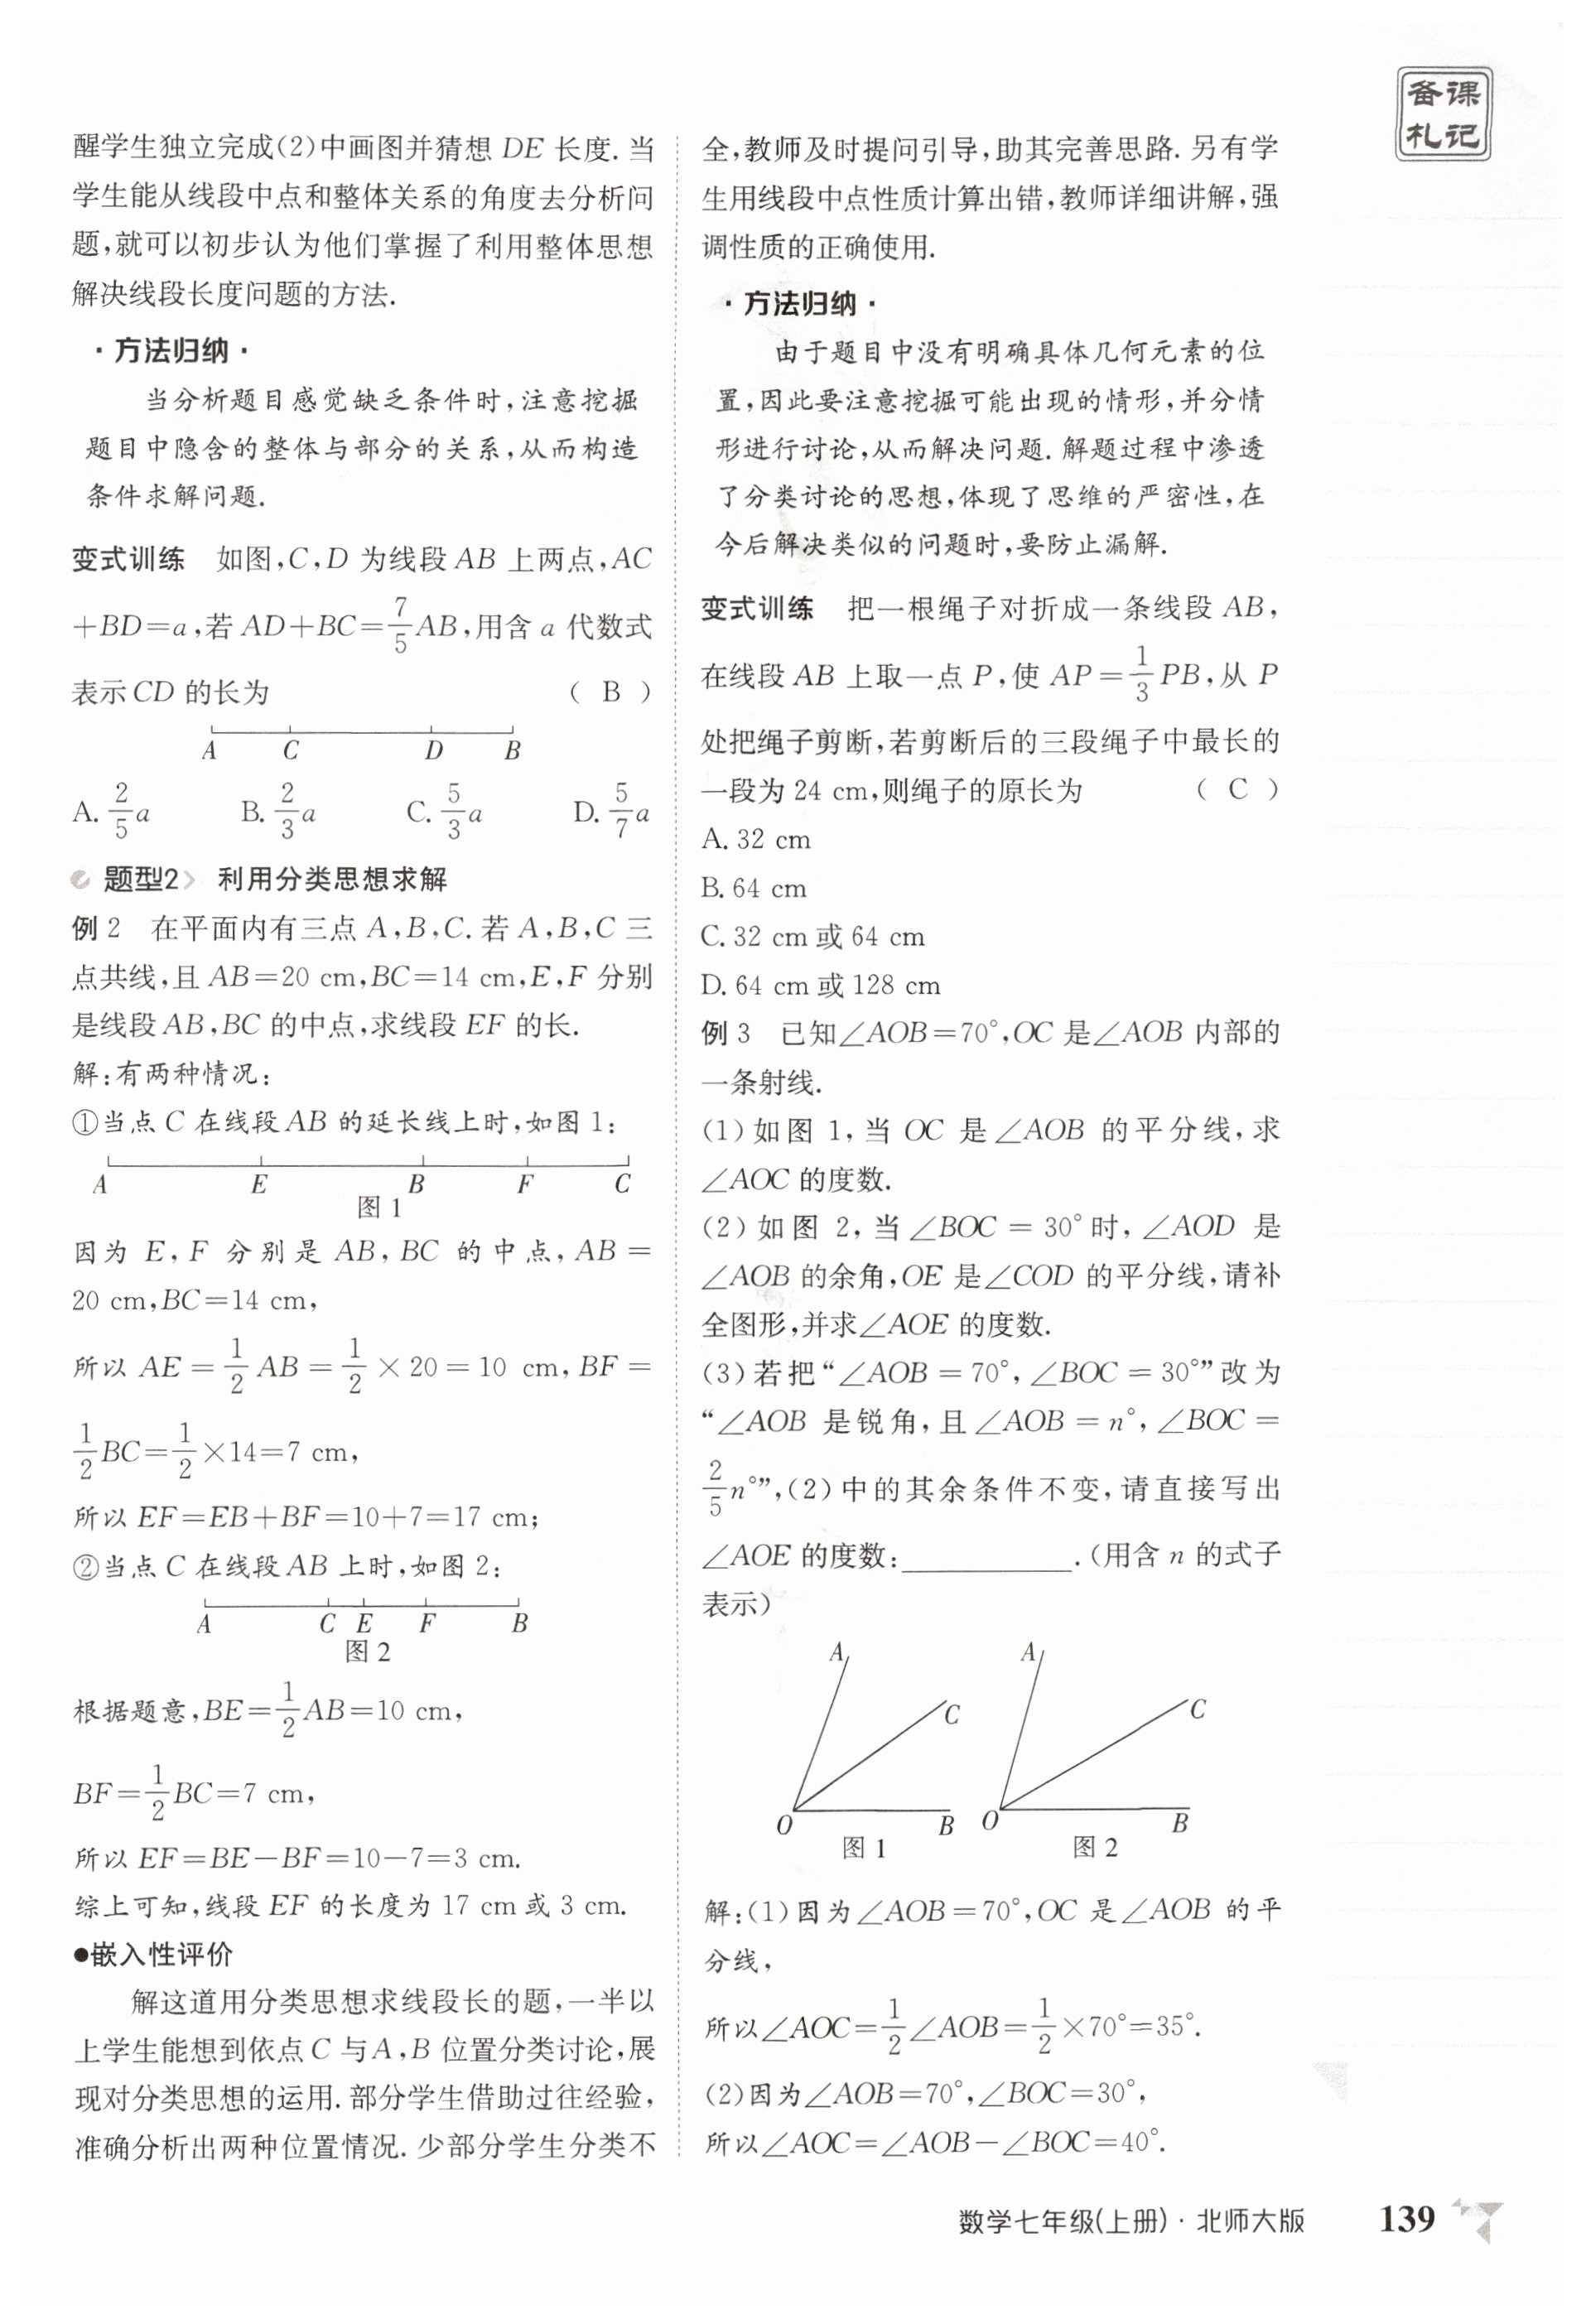 备课
札记
醒学生独立完成(2)中画图并猜想 DE 长度. 当
学生能从线段中点和整体关系的角度去分析问
题,就可以初步认为他们掌握了利用整体思想
解决线段长度问题的方法.
· 方法归纳 ·
当分析题目感觉缺乏条件时,注意挖掘
题目中隐含的整体与部分的关系,从而构造
条件求解问题.
变式训练 如图,C,D 为线段 AB 上两点,AC
+BD=a,若 AD+BC=7/5AB,用含 a 代数式
表示 CD 的长为 ( B )
A C D B
A. 2/5a B. 2/3a C. 5/3a D. 5/7a
题型2 利用分类思想求解
例 2 在平面内有三点 A,B,C. 若 A,B,C 三
点共线,且 AB=20 cm,BC=14 cm,E,F 分别
是线段 AB,BC 的中点,求线段 EF 的长.
解:有两种情况:
①当点 C 在线段 AB 的延长线上时,如图 1:
A E B F C
图 1
因为 E, F 分别是 AB, BC 的中点, AB =
20 cm,BC=14 cm,
所以 AE = 1/2 AB = 1/2 × 20 = 10 cm, BF =
1/2BC=1/2×14=7 cm,
所以 EF=EB+BF=10+7=17 cm;
②当点 C 在线段 AB 上时,如图 2:
A C E F B
图 2
根据题意,BE=1/2AB=10 cm,
BF=1/2BC=7 cm,
所以 EF=BE−BF=10−7=3 cm.
综上可知,线段 EF 的长度为 17 cm 或 3 cm.
●嵌入性评价
解这道用分类思想求线段长的题,一半以
上学生能想到依点 C 与 A,B 位置分类讨论,展
现对分类思想的运用. 部分学生借助过往经验,
准确分析出两种位置情况. 少部分学生分类不
全,教师及时提问引导,助其完善思路. 另有学
生用线段中点性质计算出错,教师详细讲解,强
调性质的正确使用.
· 方法归纳 ·
由于题目中没有明确具体几何元素的位
置,因此要注意挖掘可能出现的情形,并分情
形进行讨论,从而解决问题. 解题过程中渗透
了分类讨论的思想,体现了思维的严密性,在
今后解决类似的问题时,要防止漏解.
变式训练 把一根绳子对折成一条线段 AB,
在线段 AB 上取一点 P,使 AP=1/3 PB,从 P
处把绳子剪断,若剪断后的三段绳子中最长的
一段为 24 cm,则绳子的原长为 ( C )
A. 32 cm
B. 64 cm
C. 32 cm 或 64 cm
D. 64 cm 或 128 cm
例 3 已知∠AOB=70°,OC 是∠AOB 内部的
一条射线.
(1) 如图 1, 当 OC 是∠AOB 的平分线, 求
∠AOC 的度数.
(2) 如图 2, 当∠BOC = 30°时, ∠AOD 是
∠AOB 的余角,OE 是∠COD 的平分线,请补
全图形,并求∠AOE 的度数.
(3) 若把“∠AOB = 70°, ∠BOC = 30°”改为
“∠AOB 是锐角, 且∠AOB = n°, ∠BOC =
2/5n°”,(2) 中的其余条件不变, 请直接写出
∠AOE 的度数:__________.(用含 n 的式子
表示)
A C O B A C O B
图 1 图 2
解:(1)因为∠AOB=70°,OC 是∠AOB 的平
分线,
所以∠AOC=1/2∠AOB=1/2×70°=35°.
(2)因为∠AOB=70°,∠BOC=30°,
所以∠AOC=∠AOB−∠BOC=40°.
数学七年级(上册) · 北师大版 139